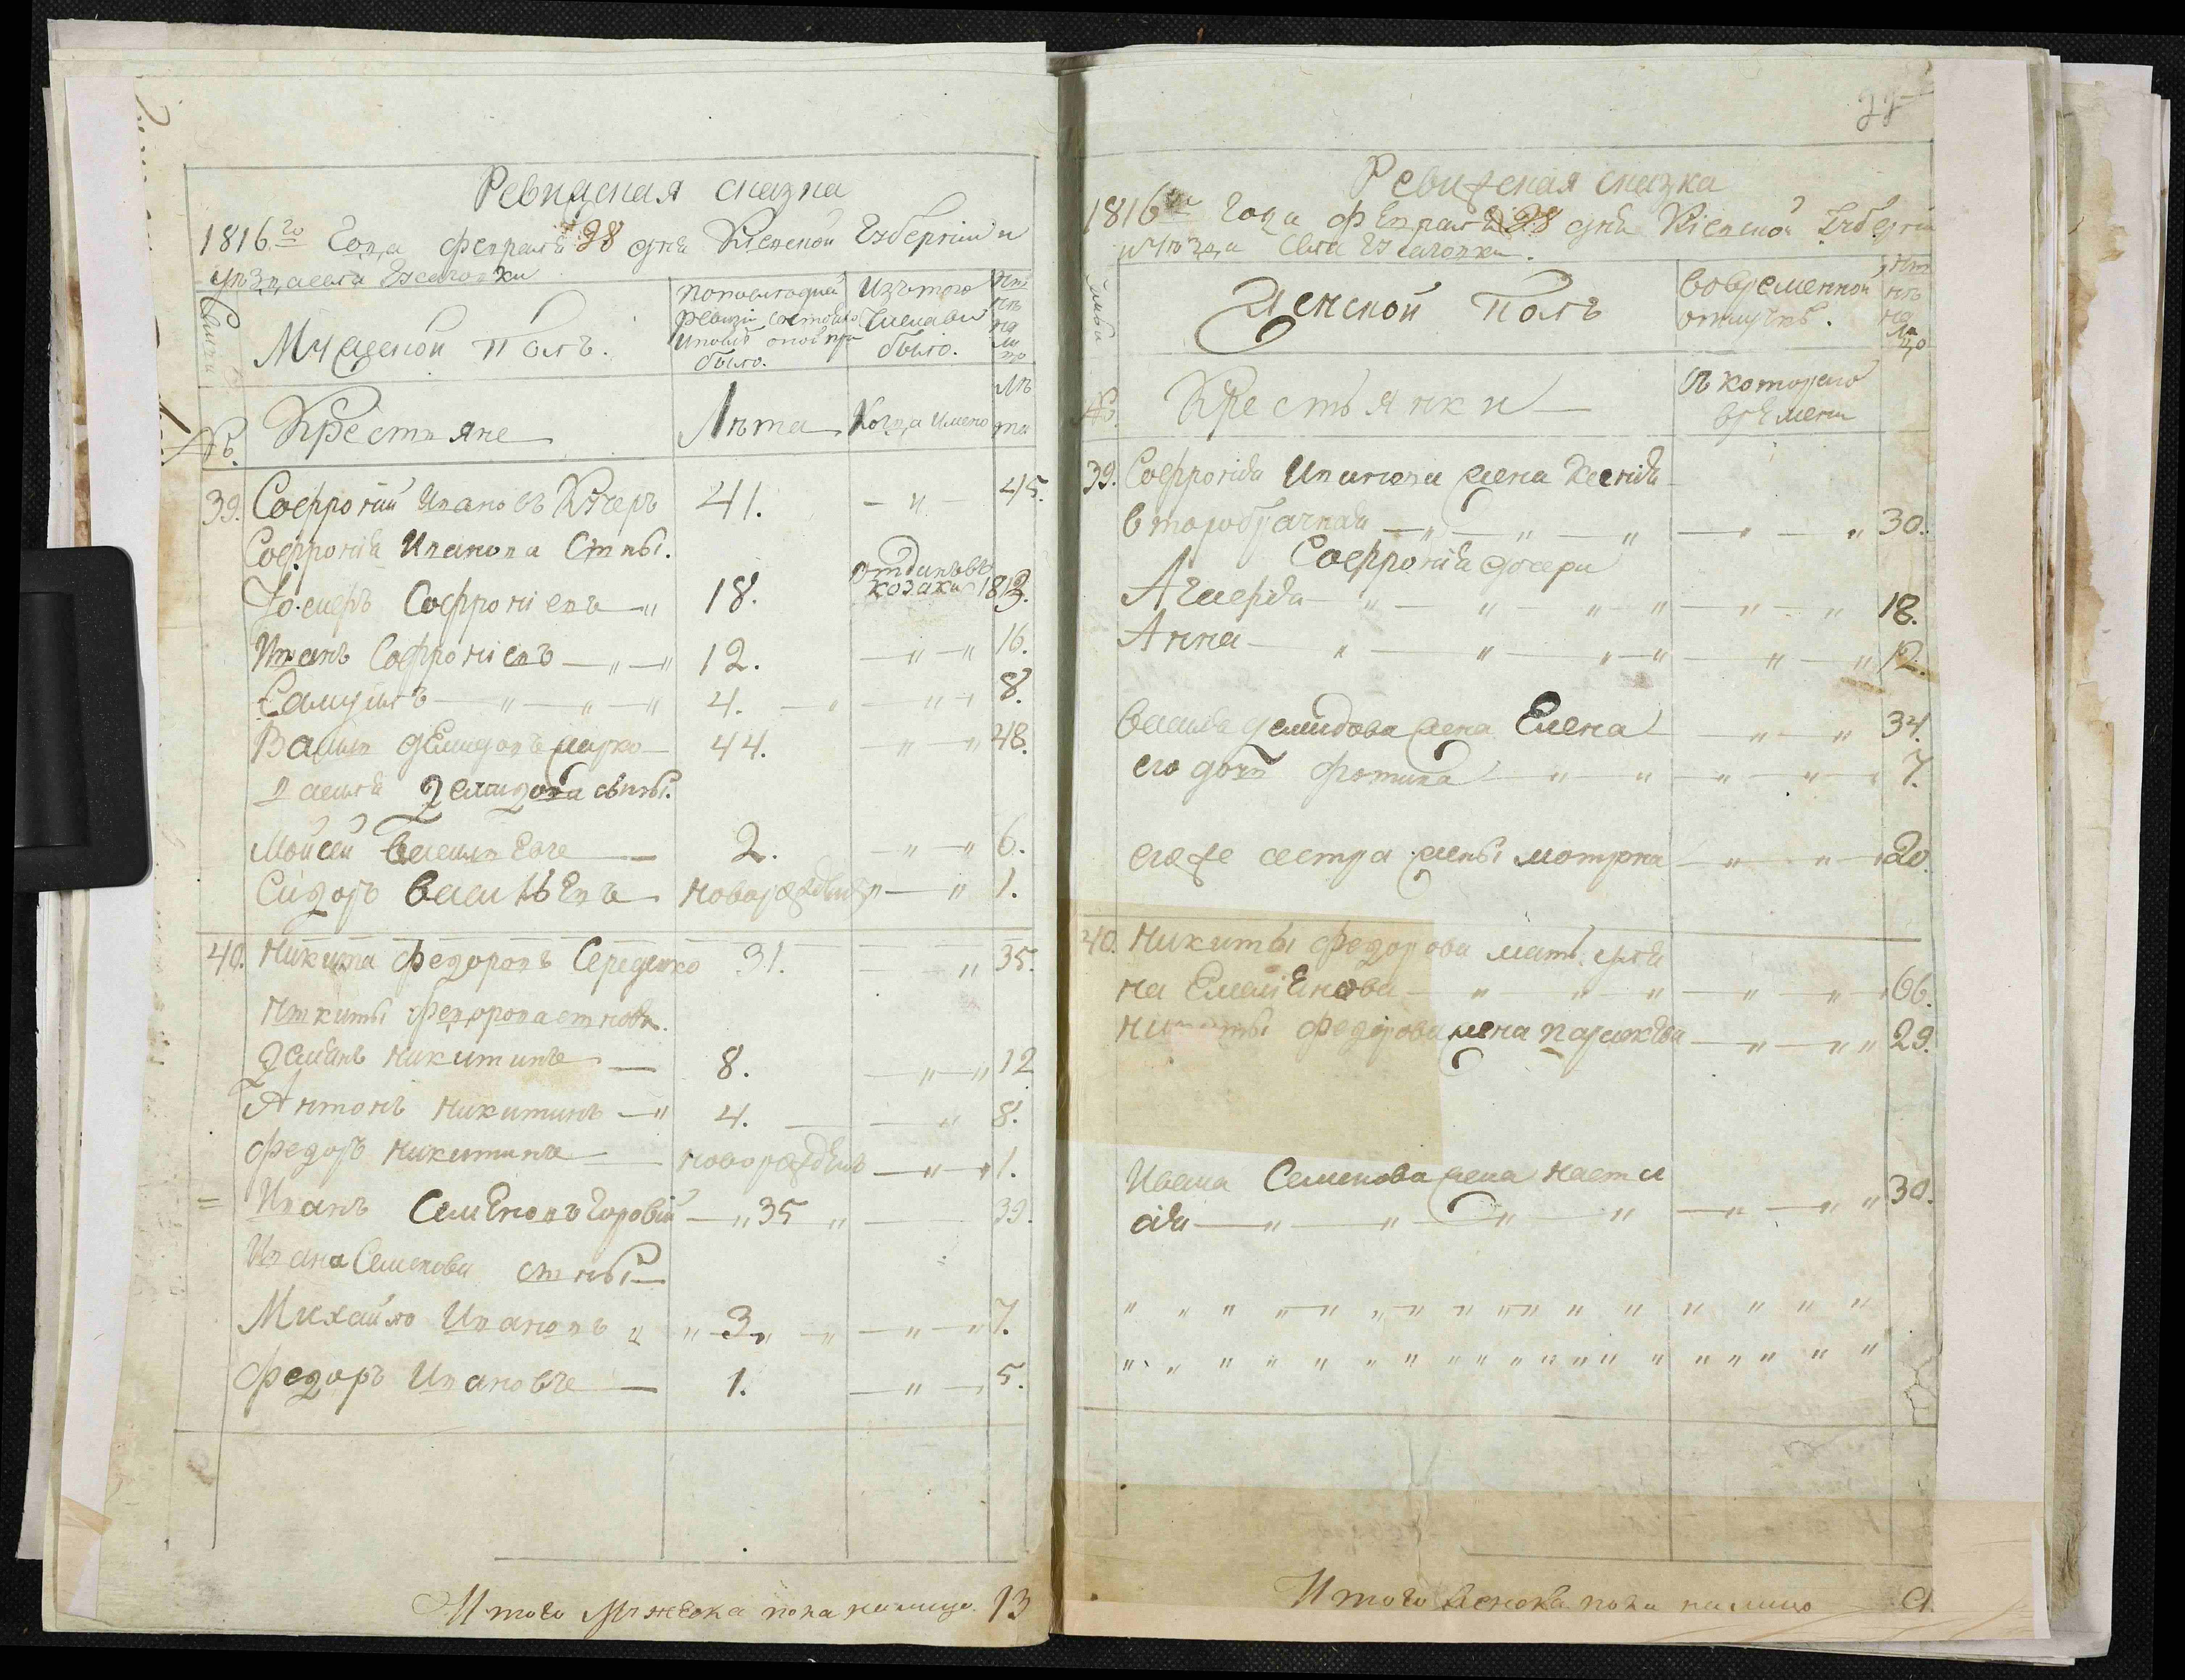 Ревизская сказка
1816го Года февраля 28 дня Киевской Губернии
Мужеской Полъ.
было.
Изътого
было.
№.
Крестяне
Лѣта
Когда имено
лѣ
та
39. Софроній Ивановъ Кучеръ 41. 45.
Софронія Иванова Сины.
Софроніевъ 18. отданъвъ козаки 1813.
Иванъ Софроніевъ 12. 16.
Самуилъ 4. 8.
Васили Демидовъ 44. 48.
Василя Демидова сыны.
Мойсей Василевъ 2. 6.
Сидоръ Васильевъ новорожденъ 1.
40. Никита Федоровъ Середенко 31. 35.
Никиты Федорова
Демянъ Никитинъ 8. 12
Антонъ Никитинъ 4. 8.
Федоръ Никитинъ новорожденъ 1.
Иванъ Семеновъ 35 39.
Ивана Семенова сины
Михайло Ивановъ 3. 7.
Федоръ Ивановъ 1. 5.
Итого Мужеска пола налицо 13
Ревизская сказка
1816го Года Февраля 28 дня Кіевской Губерніи
Женской Полъ
вовременной
отлучкѣ.
на
ли
цо
№.
Крестьянки
съ которого
времени
39. Софронія Иванова жена Ксенія
второбрачная 30.
Софронія дочери
18.
Анна 12.
Василія Демидова жена Елена 34.
его дочь Фотина 7.
егоже сестра жены мотрона 20.
40. Никиты Федорова мать улія
на Емеліенова 66.
Никиты Федорова жена параскѣва 29.
Ивана Семенова жена наста
сія 30.
Итого женска пола налицо 9